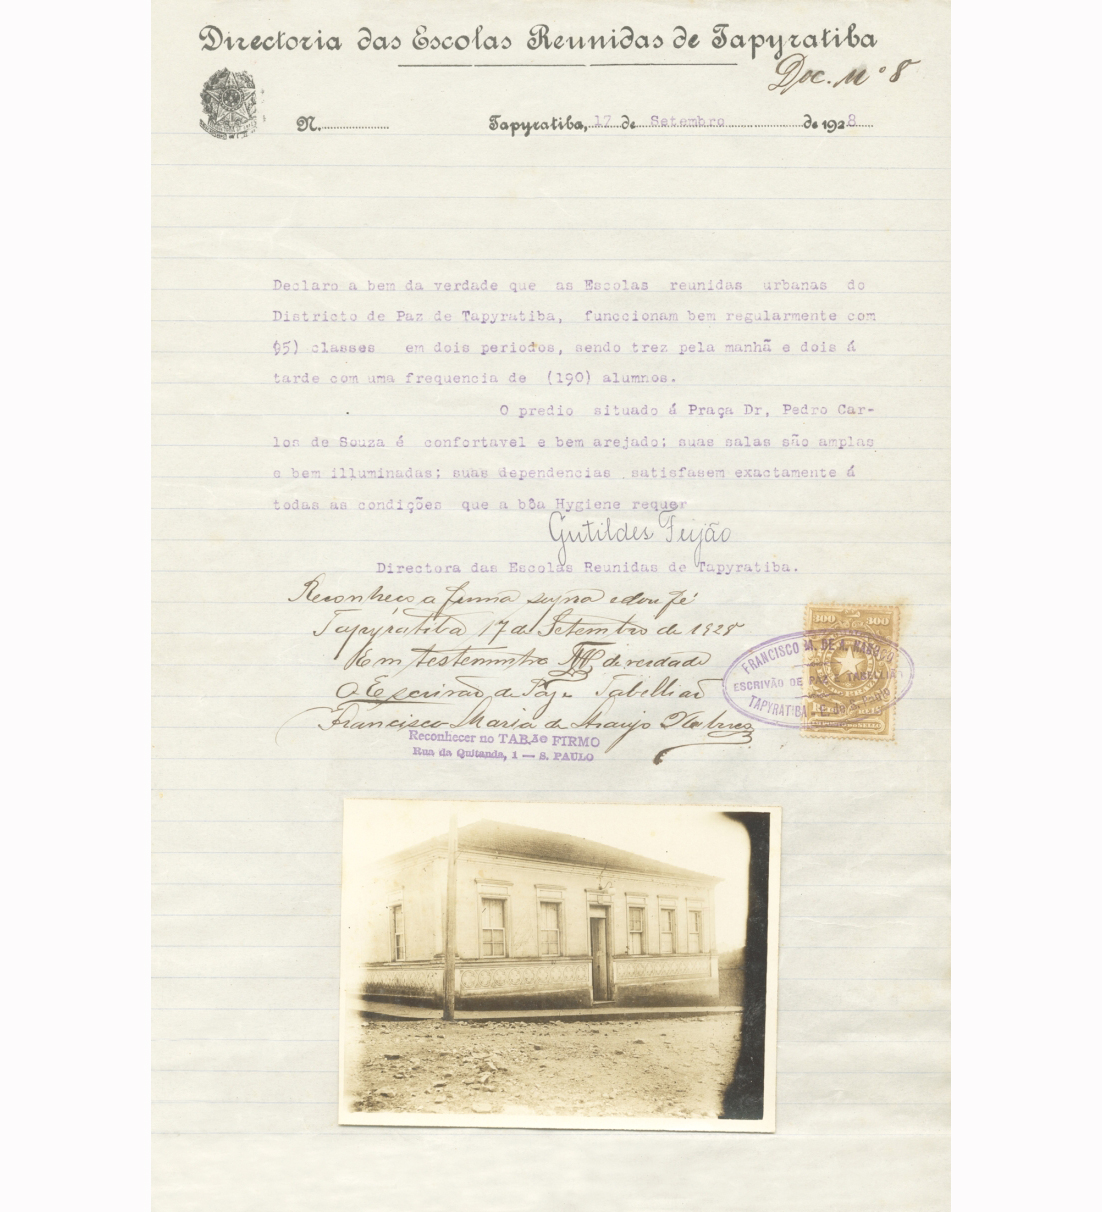 Directoria das Escolas Reunidas de Tapyratiba
Doc. Nº 8
N. Tapyratiba, 17 de Setembro de 1928
Declaro a bem da verdade que as Escolas reunidas urbanas do
Districto de Paz de Tapyratiba, funccionam bem regularmente com
(5) classes em dois periodos, sendo trez pela manhã e dois á
tarde com uma frequencia de (190) alumnos.
O predio situado á Praça Dr, Pedro Car-
los de Souza é confortavel e bem arejado; suas salas são amplas
e bem illuminadas; suas dependencias satisfasem exactamente á
todas as condições que a bôa Hygiene requer
Gutildes Feijão
Directora das Escolas Reunidas de Tapyratiba.
Reconheço a firma supra e dou fé
Tapyratiba 17 de Setembro de 1928
Em testemunho da verdade
O Escrivão de Paz e Tabellião
Francisco Maria de Araujo
300 300
FRANCISCO M. DE A.
ESCRIVÃO DE PAZ E TABELLIÃO
TAPYRATIBA
Reconhecer no TAB.ão FIRMO
Rua da Quitanda, 1 — S. PAULO